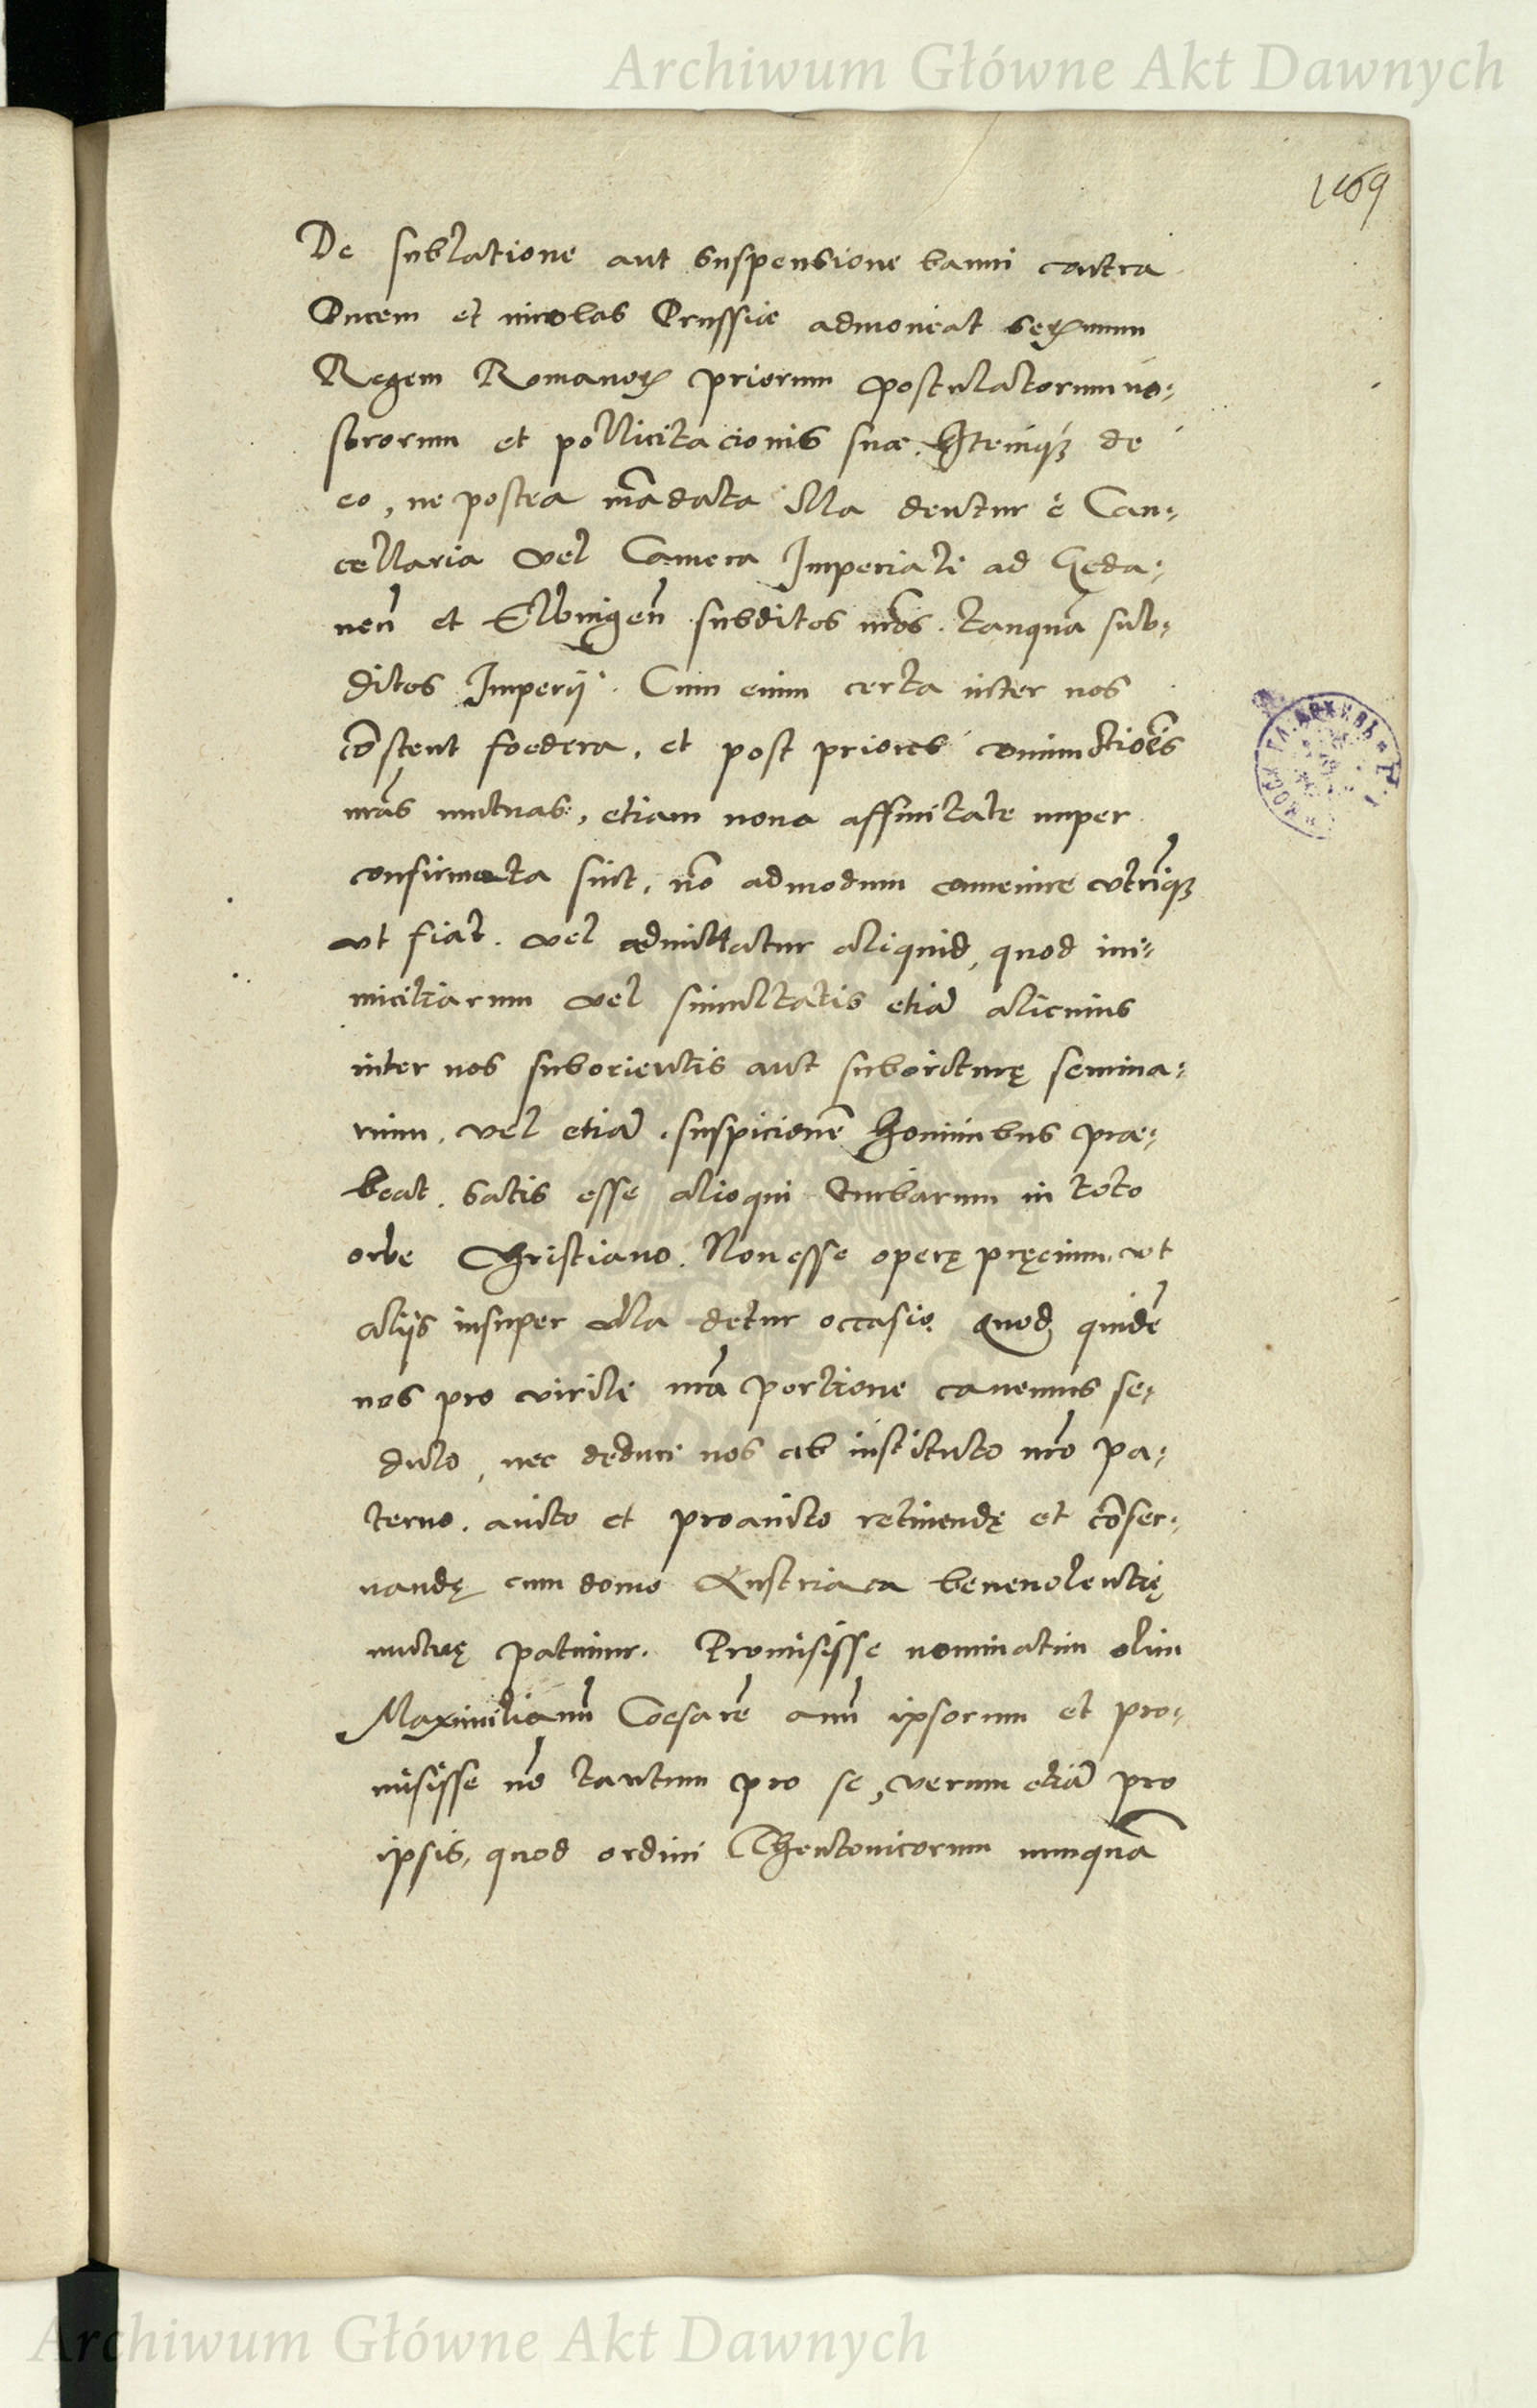 Archiwum Główne Akt Dawnych
169
De sublatione aut suspensione banni contra
Ducem et incolas Prussiae admoneat serᵐum
Regem Romanoꝝ priorum postulatorum no⸗
strorum et pollicitacionis suae. Itemq́ꝫ de
eo, ne postea mādata illa dentur è Can⸗
cellaria vel Camera Imperiali ad Geda⸗
neñ et Elbingeñ subditos nr̃os. tanquā sub⸗
ditos Imperij. Cum enim certa inter nos
cōstent foedera, et post priores coniunctiões
nr̃as mutuas, etiam nova affinitate nuper
confirmata sint, nō admodum convenire utrīqꝫ
ut fiat. vel admittatur aliquid, quod ini⸗
micitiarum vel simultatis etiā alicuius
inter nos suborientis aut suboriturę semina⸗
rium, vel etiā suspicionē hominibus prae⸗
beat. Satis esse alioqui turbarum in toto
orbe Christiano. Non esse operę pręcium, ut
aliis insuper ulla detur occasio. Quod quidē
nos pro virili nr̃a portione cavemus se⸗
dulo, nec dęduci nos ab instituto nr̃o pa⸗
terno. avito et proavito retinendę et cōser⸗
vandę cum domo Austriaca benevolentię
mutuę patimur. Promisisse nominatim olim
Maximilianū Coesarē avū ipsorum et pro⸗
misisse nō tantum pro se, verum etiā pro
ipsis, quod ordini Theutonicorum nunquā
Archiwum Główne Akt Dawnych